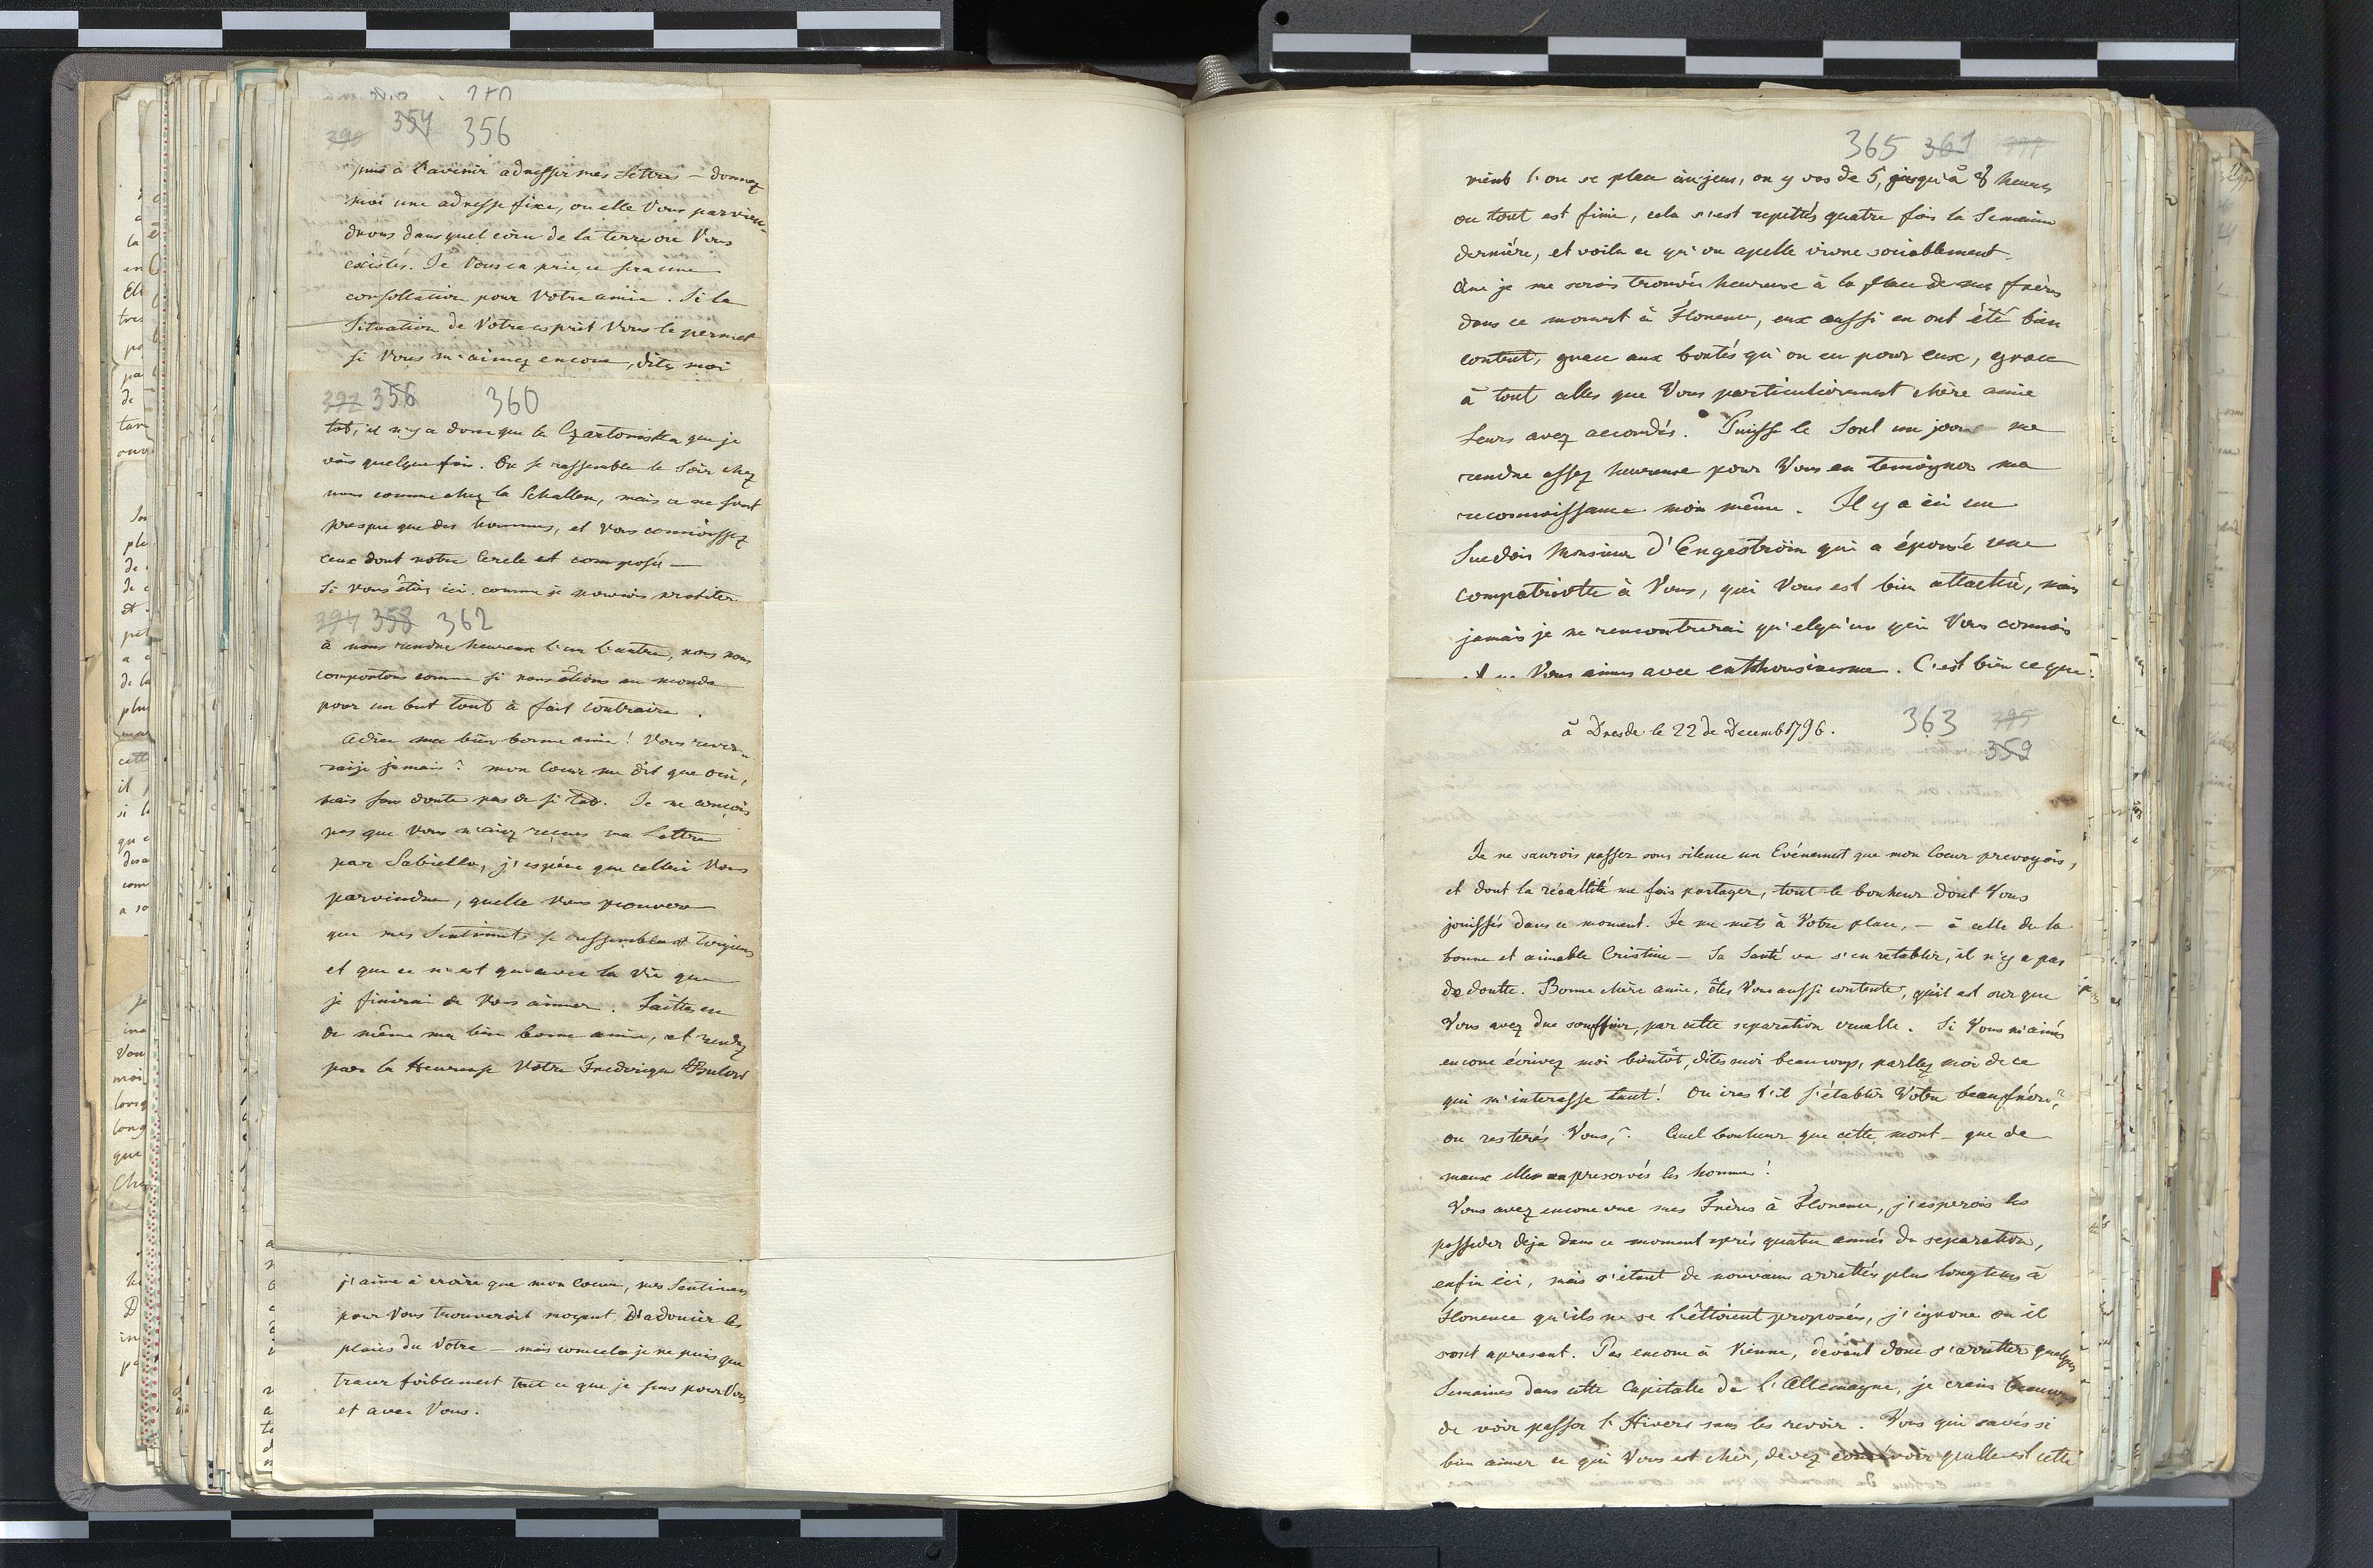 390 354 356
puis à l'avenir adresser mes Lettres — donnez
moi une adresse fixe, ou elle Vous parvien-
drons dans quel coin de la terre ou Vous
existés. Je Vous en prie, ce sera une
consollation pour Votre amie. Si la
Situation de Votre esprit Vous le permet
si Vous m'aimez encore, dites moi
392 356 360
tot, il n'y a donc que la Czartoriska que je
vois quelque fois. On se rassemble le Soir chez
nous comme chez la Schallen, mais ce ne sont
presque que des hommes, et Vous connoissez
ceux dont notre Cercle est composé —
Si Vous étiez ici, comme je pourrois profiter
394 358 362
à nous rendre heureux l'un l'autre, nous nous
comportons comme si nous étions au monde
pour un but tout à fait contraire.
Adieu ma bien bonne amie! Vous rever-
raije jamais? mon Coeur me dit que oui,
mais sans doute pas de si tot. Je ne conçois
pas que Vous n'aiez reçues ma Lettre
par Sabiello, j'espère que celleci Vous
parviendra, quelle Vous prouvera
que mes Sentiments se ressemblent toujours
et que ce n'est qu'avec la vie que
je finirai de Vous aimer. Faittes en
de même ma bien bonne amie, et rendez
par la Heureuse Votre Frederique Bulow
j'aime à croire que mon Coeur, mes Sentimens
pour Vous trouveroit moyent D'adoucir les
plaies du Votre — mais comcela je ne puis que
tracer foiblement tout ce que je sens pour Vous
et avec Vous.
365 361 397
vient l'on se place au jeux, on y vas de 5, jusqu'à 8 heures
ou tout est finie, cela s'est repettés quatre fois la Semaine
dernière, et voila ce qu'on apelle vivre sociablement.
Que je me serois trouvés heureuse à la place de mes frères
dans ce moment à Florence, eux aussi en ont été bien
content, grace aux bontés qu'on eu pour eux, grace
à tout celles que Vous particulièrement chère amie
Leurs avez accordés. Puisse le Sort un jour me
rendre assez heureuse pour Vous en temoigner ma
reconnoissance moi même. Il y a ici un
Suedois Monsieur d'Engeström qui a épousé une
compatriotte à Vous, qui Vous est bien attachée, mais
jamais je ne rencontrerai qu'elqu'un qui Vous connois
et ne Vous aimes avec enthousiasme. C'est bien ce que
363 395
à Dresde le 22 de Decemb 1796.
359
Je ne saurois passer sous silence un Evénement que mon Coeur prevoyois,
et dont la réallité me fais partager, tout le bonheur dont Vous
jouissés dans ce moment. Je me mets à Votre place, — à celle de la
bonne et aimable Cristine — Sa Santé va s'en retablir, il n'y a pas
de doutte. Bonne chère amie, êtes Vous aussi contente, qu'il est sur que
Vous avez due souffrir, par cette separation cruelle. Si Vous m'aimés
encore écrivez moi bientôt, dites moi beaucoup, parllez moi de ce
qui m'interesse tant! Ou iras t'il s'établir Votre beaufrére?
ou resterés Vous,? Quel bonheur que cette mort — que de
maux elles a preservés les homme!
Vous avez encore vue mes Frères à Florence, j'esperois les
posseder deja dans ce moment après quatre annés de separation,
enfin ici, mais s'étant de nouveau arrettés plus longtems à
Florence qu'ils ne se l'êttoient proposés, j'ignore ou il
sont apresent. Pas encore à Vienne, devant donc s'arretter quelques
Semaines dans cette Capitalle de l'Allemagne, je crains beaucoup
de voir passer l'Hivers sans les revoir. Vous qui savés si
bien aimer ce qui Vous est chèr, devez concevoir quelle est cette